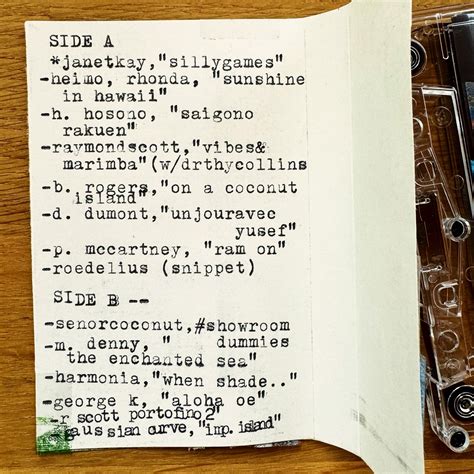 SIDE A
*janetkay,"sillygames"
-heimo, rhonda, "sunshine
in hawaii"
-h. hosono, "saigono
rakuen"
-raymondscott,"vibes&
marimba"(w/drthycollins
-b. rogers,"on a coconut
island"
-d. dumont,"unjouravec
yusef"
-p. mccartney, "ram on"
-roedelius (snippet)
SIDE B --
-senorcoconut,#showroom
dummies
-m. denny, "
the enchanted sea"
-harmonia,"when shade.."
-george k, "aloha oe"
-r scott portofino 2"
gaussian curve, "imp. island"